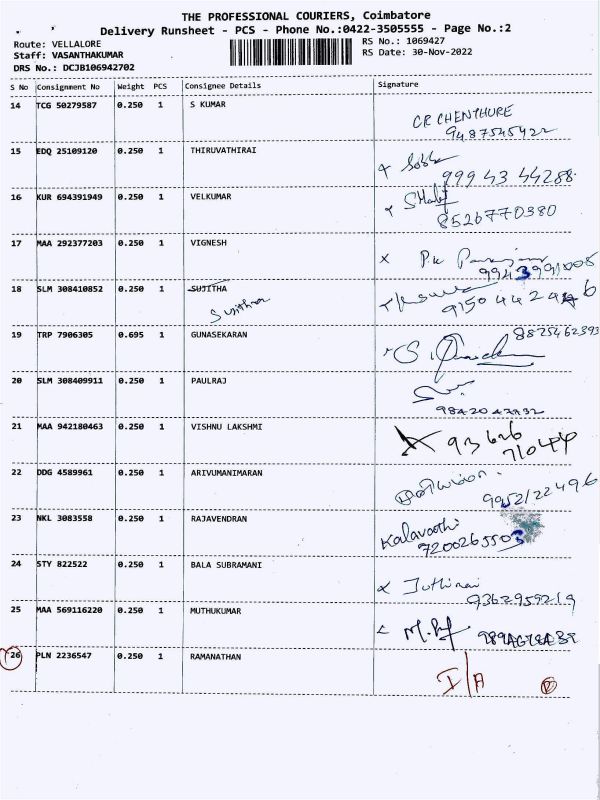 THE PROFESSIONAL COURIERS, Coimbatore
Delivery Runsheet - PCS - Phone No.:0422-3505555 - Page No.:2
Route: VELLALORE
RS No.: 1069427
Staff: VASANTHAKUMAR
RS Date: 30-Nov-2022
DRS No.: DCJB106942702
S No Consignment No Weight PCS Consignee Details Signature
14 TCG 50279587 0.250 1 S KUMAR
CR CHENTHURE
9487545422
15 EDQ 25109120 0.250 1 THIRUVATHIRAI
999 43 44288
16 KUR 694391949 0.250 1 VELKUMAR
8526770380
17 MAA 292377203 0.250 1 VIGNESH
x PK
9943991005
18 SLM 308410852 0.250 1 SUJITHA
Sujitha
19 TRP 7906305 0.695 1 GUNASEKARAN
8825462393
20 SLM 308409911 0.250 1 PAULRAJ
21 MAA 942180463 0.250 1 VISHNU LAKSHMI
93626
71044
22 DDG 4589961 0.250 1 ARIVUMANIMARAN
9952122496
23 NKL 3083558 0.250 1 RAJAVENDRAN
Kalavathi
7200265503
24 STY 822522 0.250 1 BALA SUBRAMANI
9362959219
25 MAA 569116220 0.250 1 MUTHUKUMAR
26 PLN 2236547 0.250 1 RAMANATHAN
I/A